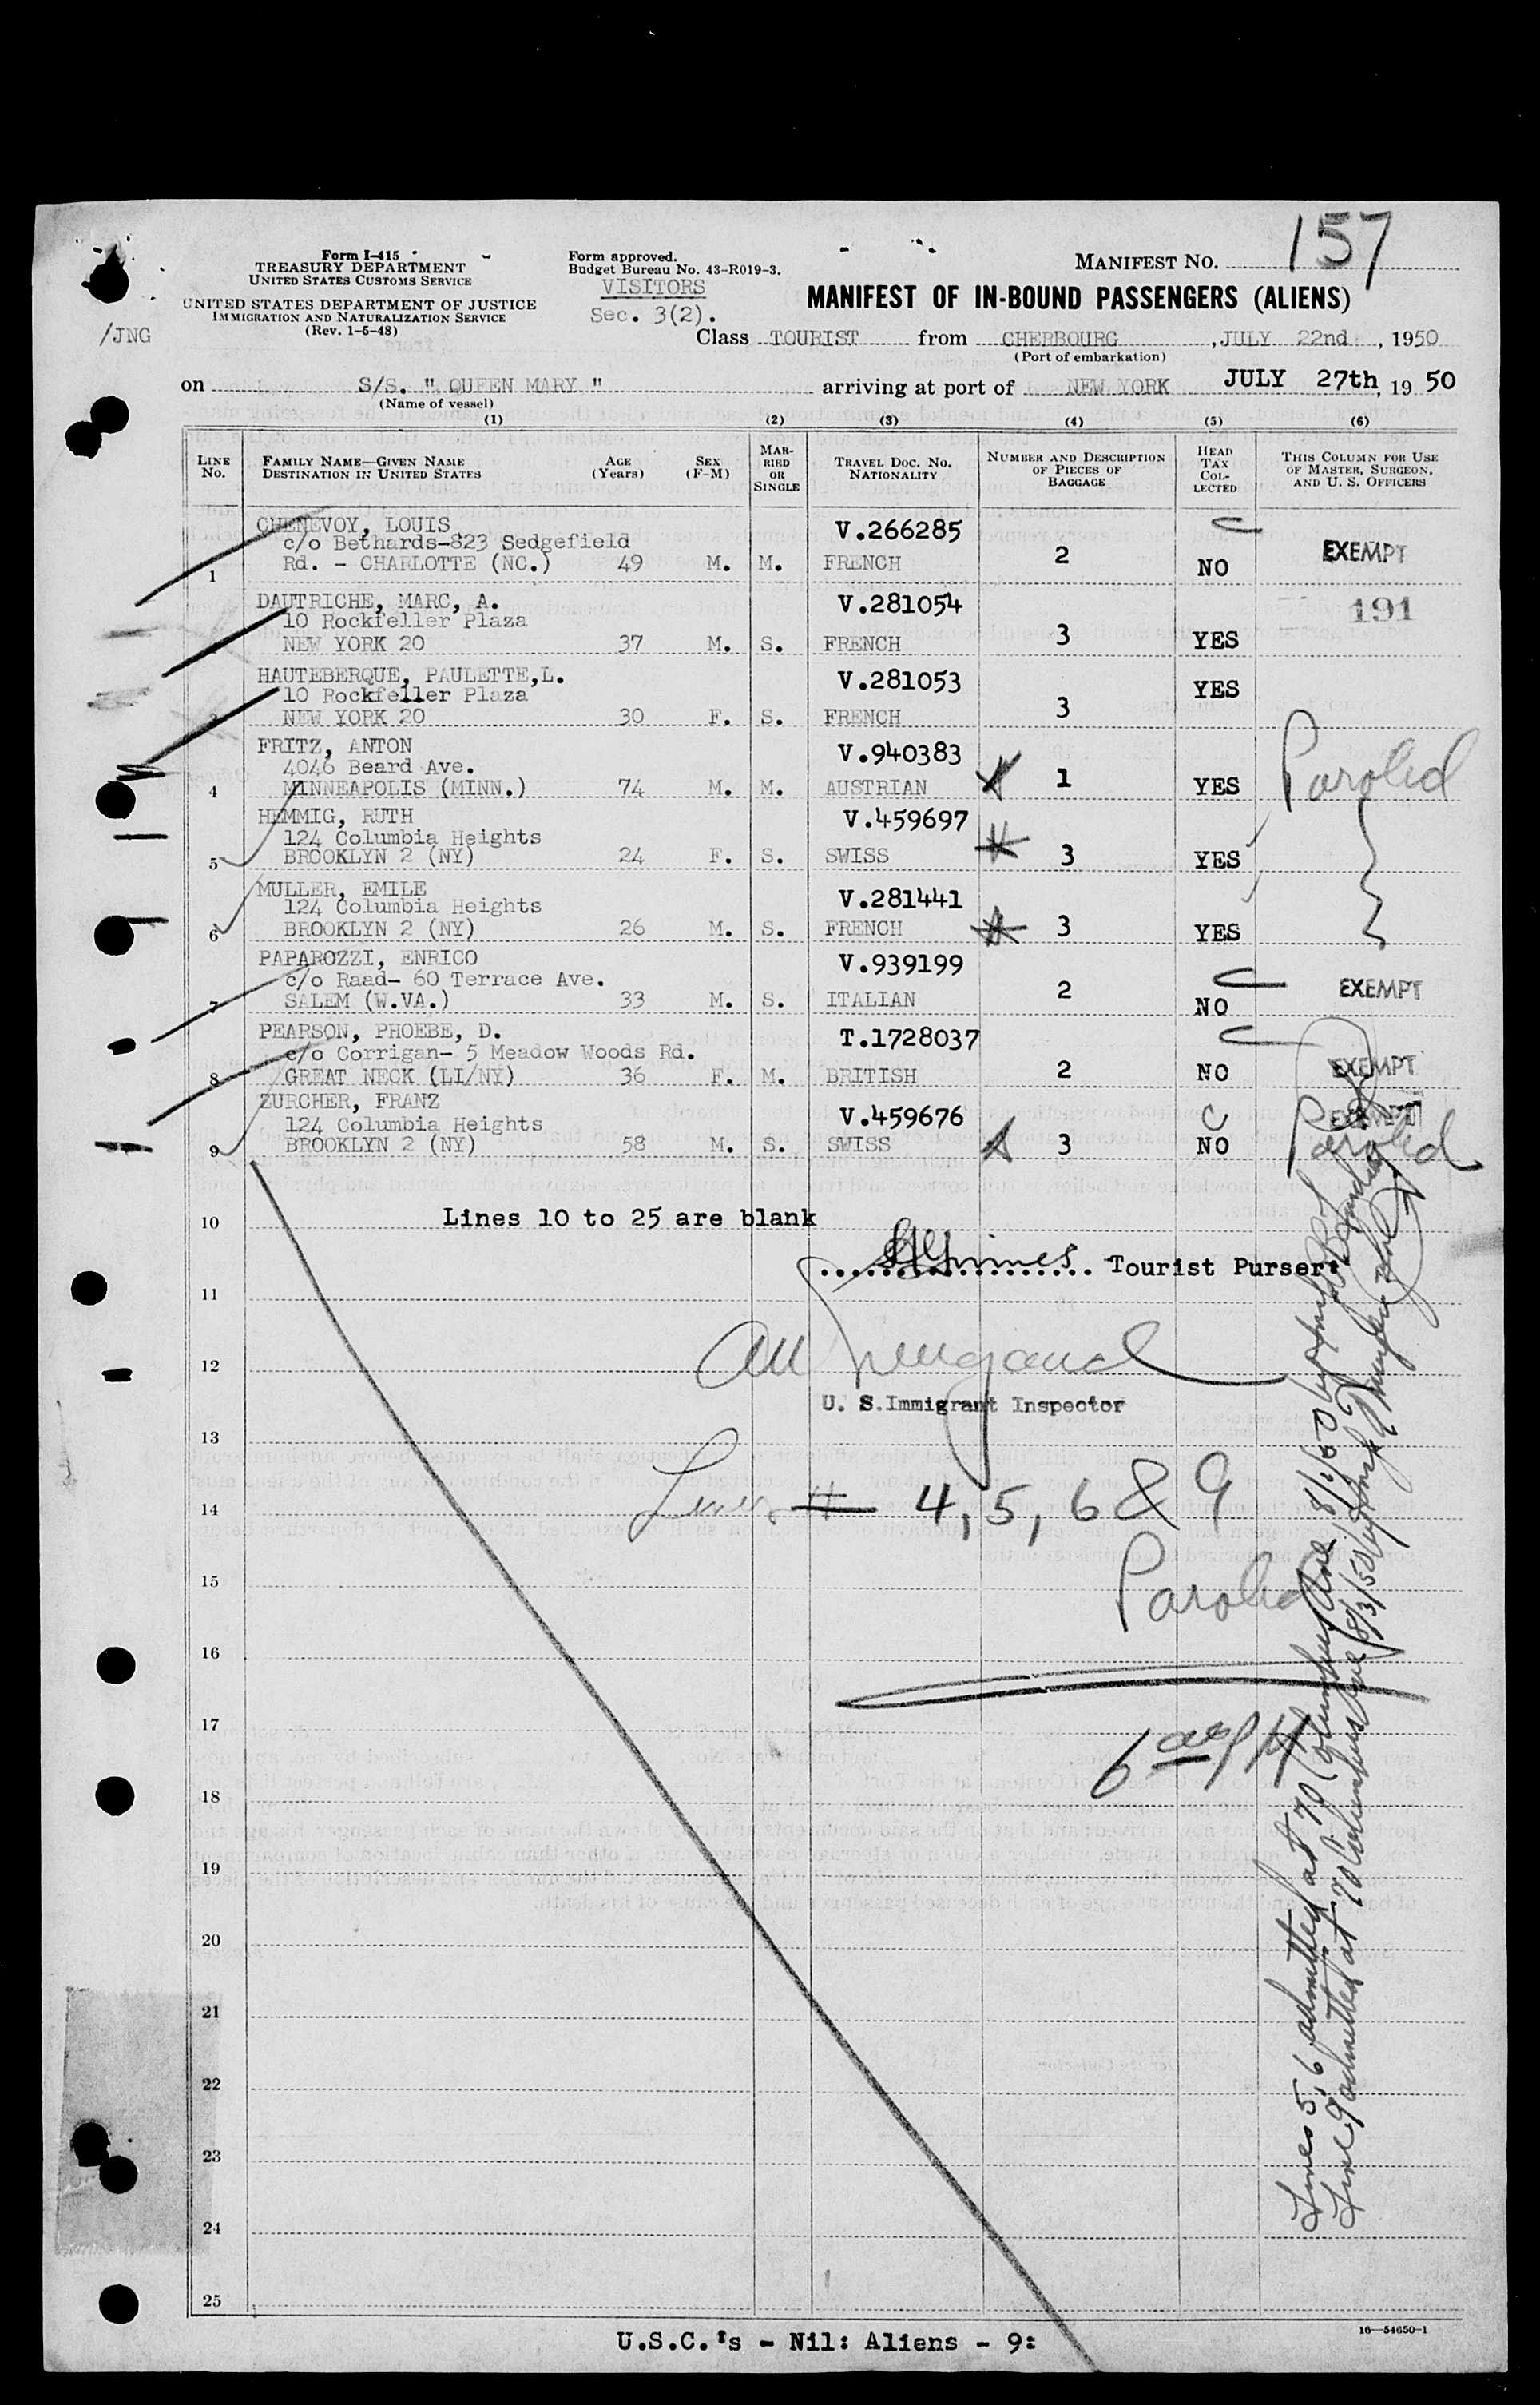 157
Form I-415
TREASURY DEPARTMENT
UNITED STATES CUSTOMS SERVICE
UNITED STATES DEPARTMENT OF JUSTICE
IMMIGRATION AND NATURALIZATION SERVICE
(Rev. 1-5-48)
/JNG
Form approved.
Budget Bureau No. 43-R019-3.
VISITORS
Sec. 3(2).
MANIFEST NO.
MANIFEST OF IN-BOUND PASSENGERS (ALIENS)
Class TOURIST from CHERBOURG, JULY 22nd, 1950
(Port of embarkation)
on S/S. " QUEEN MARY " arriving at port of NEW YORK JULY 27th, 19 50
(Name of vessel)
(1) (2) (3) (4) (5) (6)
LINE No.
FAMILY NAME—GIVEN NAME
DESTINATION IN UNITED STATES
AGE (Years)
SEX (F-M)
MARRIED OR SINGLE
TRAVEL DOC. NO.
NATIONALITY
NUMBER AND DESCRIPTION OF PIECES OF BAGGAGE
HEAD TAX COLLECTED
THIS COLUMN FOR USE OF MASTER, SURGEON, AND U. S. OFFICERS
CHENEVOY, LOUIS V.266285
c/o Bethards-823 Sedgefield
1 Rd. - CHARLOTTE (NC.) 49 M. M. FRENCH 2 NO EXEMPT
DAUTRICHE, MARC, A. V.281054 191
10 Rockfeller Plaza
NEW YORK 20 37 M. S. FRENCH 3 YES
HAUTEBERQUE, PAULETTE,L. V.281053
10 Rockfeller Plaza
3 NEW YORK 20 30 F. S. FRENCH 3 YES
FRITZ, ANTON V.940383
4046 Beard Ave.
4 MINNEAPOLIS (MINN.) 74 M. M. AUSTRIAN 1 YES Paroled
HEMMIG, RUTH V.459697
124 Columbia Heights
5 BROOKLYN 2 (NY) 24 F. S. SWISS 3 YES
MULLER, EMILE V.281441
124 Columbia Heights
6 BROOKLYN 2 (NY) 26 M. S. FRENCH 3 YES
PAPAROZZI, ENRICO V.939199
c/o Raad- 60 Terrace Ave.
7 SALEM (W.VA.) 33 M. S. ITALIAN 2 NO EXEMPT
PEARSON, PHOEBE, D. T.1728037
c/o Corrigan- 5 Meadow Woods Rd.
8 GREAT NECK (LI/NY) 36 F. M. BRITISH 2 NO EXEMPT
ZURCHER, FRANZ V.459676 EXEMPT
124 Columbia Heights
9 BROOKLYN 2 (NY) 58 M. S. SWISS 3 C NO Paroled
10 Lines 10 to 25 are blank
Tourist Purser:
11
12
U. S. Immigrant Inspector
13
14 Lines # 4, 5, 6 & 9
15 Paroled
16
17
18
19
20
21
22
23
24
25
Lines 5, 6 admitted at 70 Columbus Ave. 8/1/50 by
Line 9 admitted at 70 Columbus Ave 8/3/50 by
16—54650-1
U.S.C.'s - Nil: Aliens - 9: